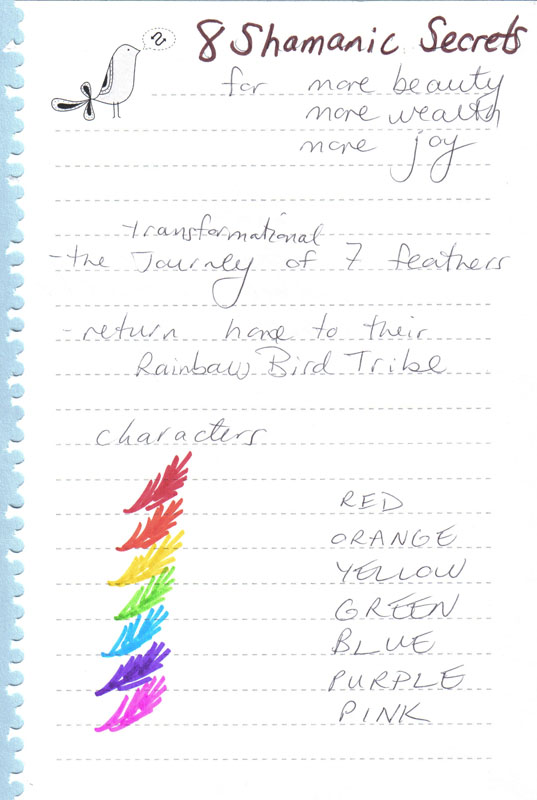 8 Shamanic Secrets
for more beauty
more wealth
more joy
transformational
- the Journey of 7 feathers
- return home to their
Rainbow Bird Tribe
characters
RED
ORANGE
YELLOW
GREEN
BLUE
PURPLE
PINK